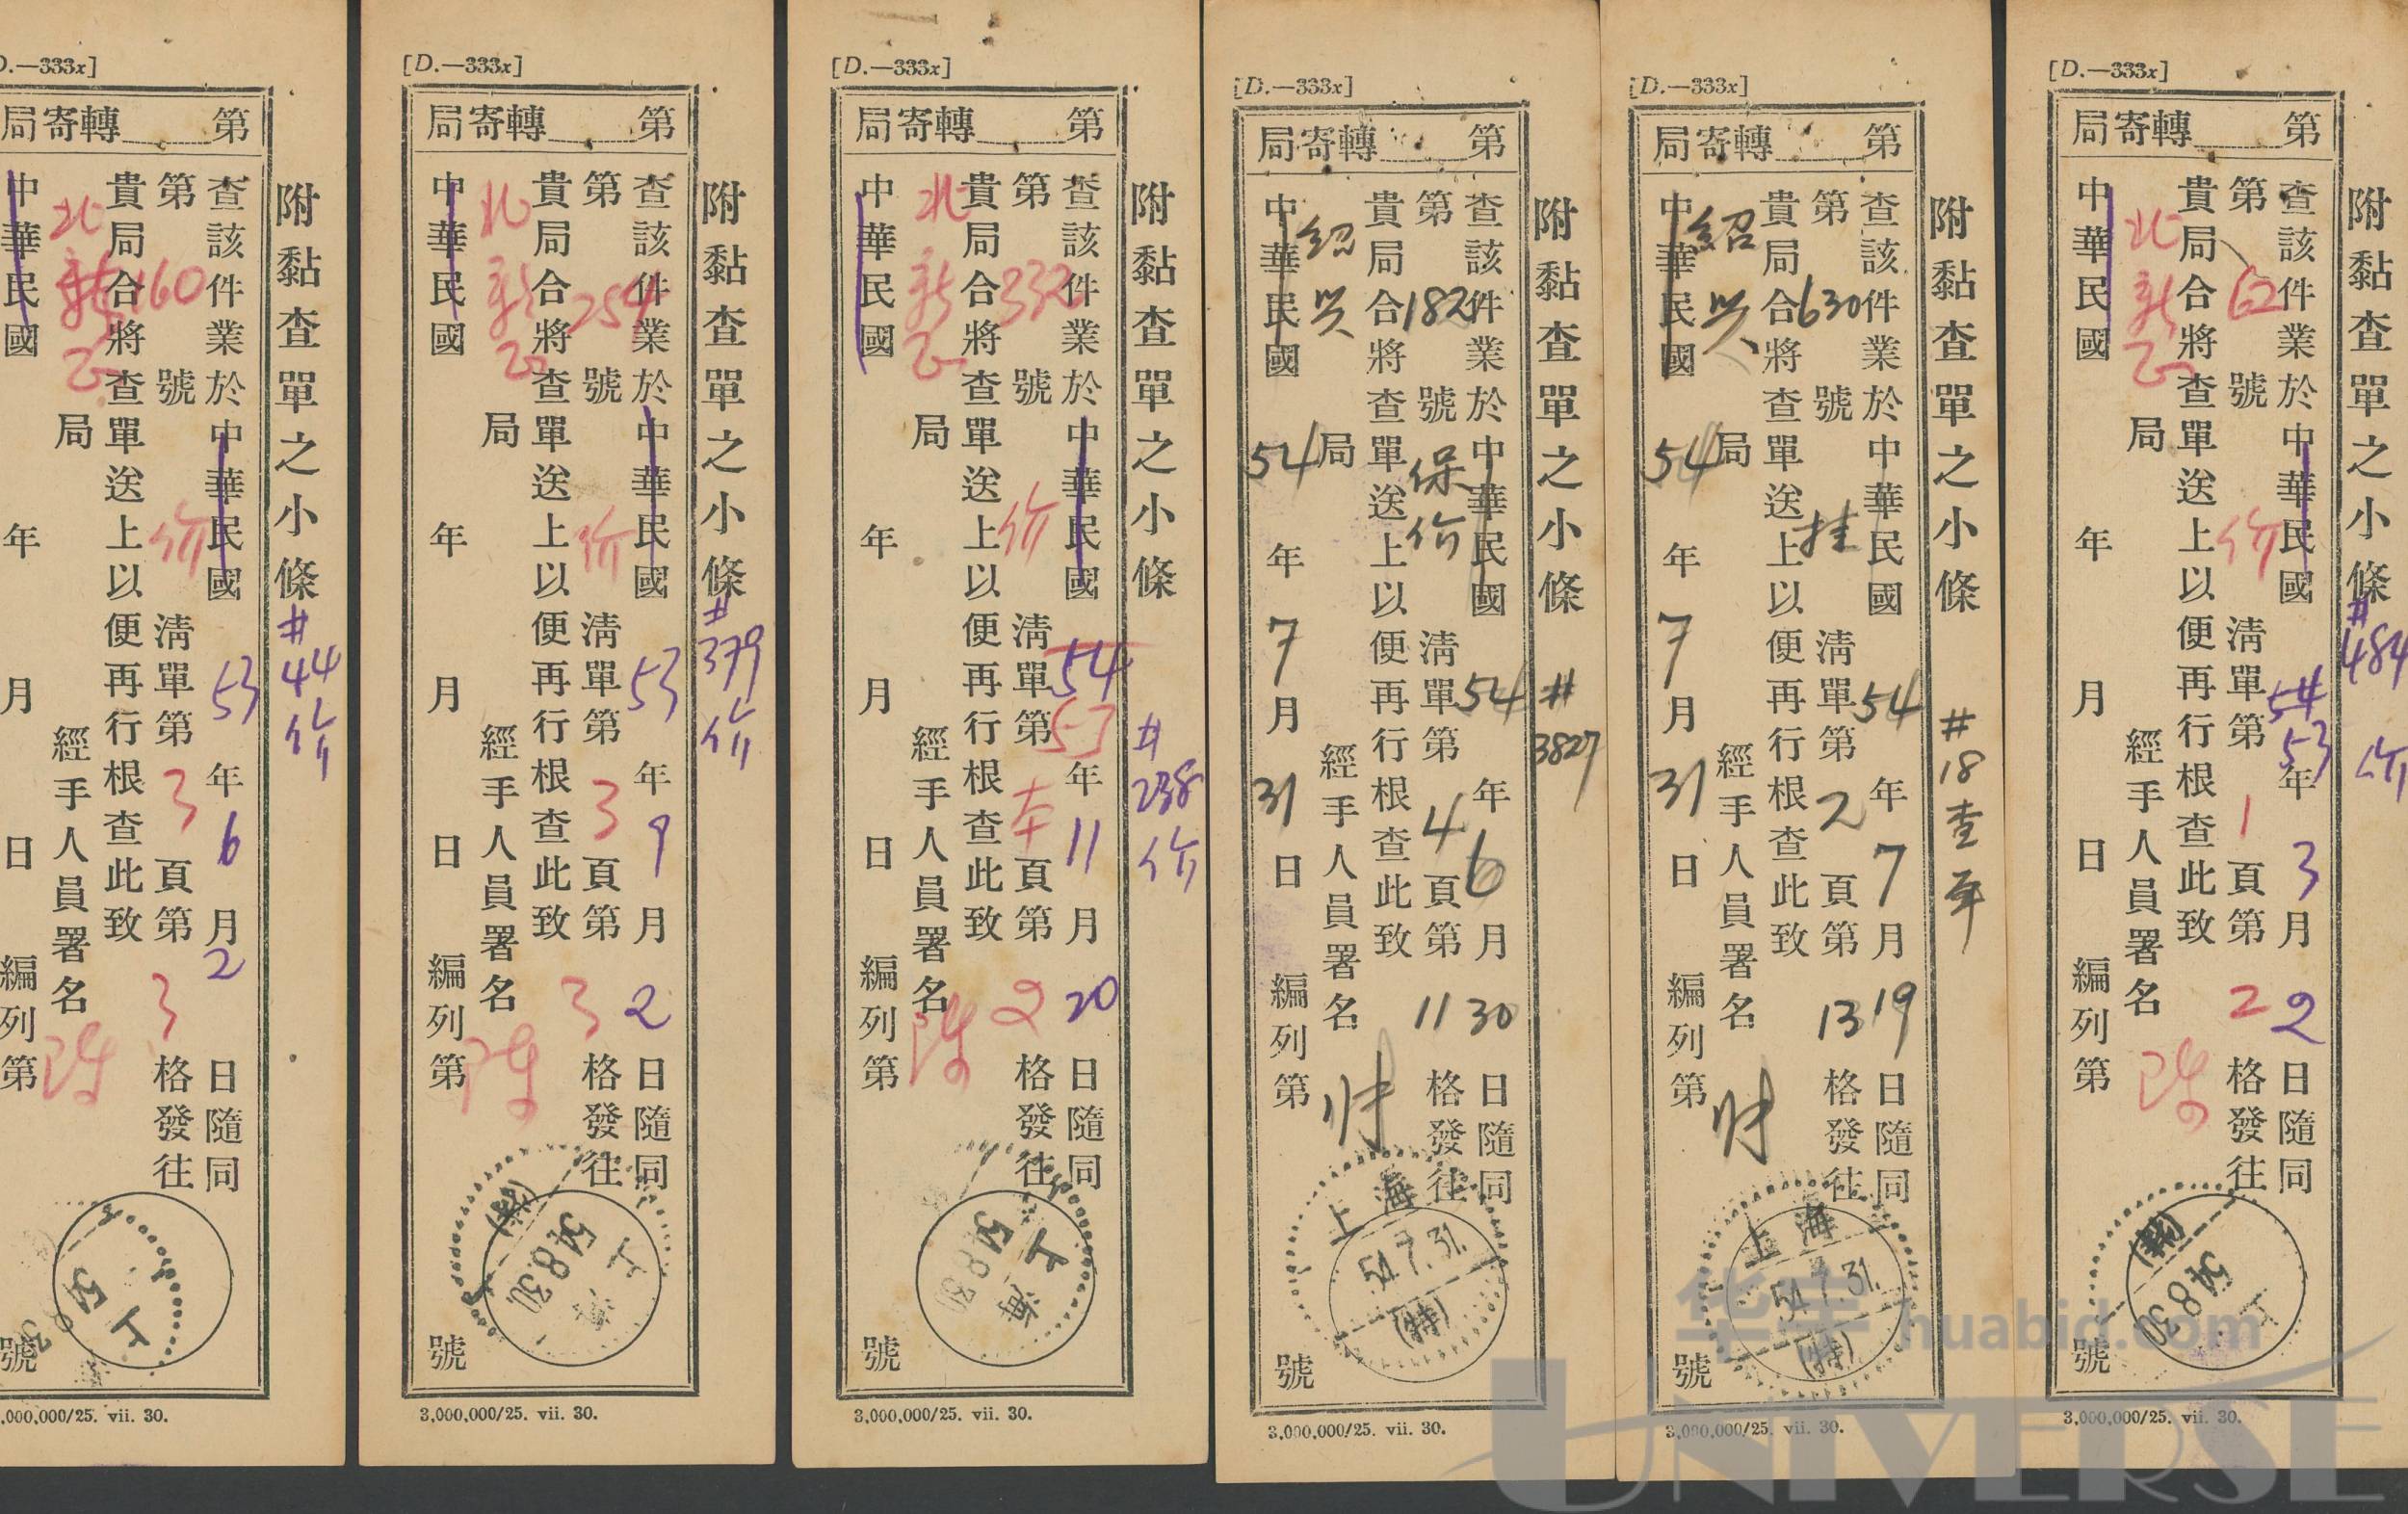 D.—333x]
第 轉寄局
附黏查單之小條 #44 价
查該件業於中華民國 53 年 6 月 2 日隨同
第 160 號 价 淸單第 3 頁第 3 格發往
貴局合將查單送上以便再行根查此致
北新 局 經手人員署名
中華民國 年 月 日 編列第 號
上
,000,000/25. vii. 30.
[D.—333x]
第 轉寄局
附黏查單之小條 #379 价
查該件業於中華民國 53 年 9 月 2 日隨同
第 254 號 价 淸單第 3 頁第 3 格發往
貴局合將查單送上以便再行根查此致
北新 局 經手人員署名 陳
中華民國 年 月 日 編列第 號
上海
54.8.30
3,000,000/25. vii. 30.
[D.—333x]
第 轉寄局
附黏查單之小條 #238 价
查該件業於中華民國 54 53 年 11 月 20 日隨同
第 332 號 价 淸單第 本 頁第 2 格發往
貴局合將查單送上以便再行根查此致
北新 局 經手人員署名
中華民國 年 月 日 編列第 號
上海
54.8.30
3,000,000/25. vii. 30.
[D.—333x]
第 轉寄局
附黏查單之小條 #3827
查該件業於中華民國 54 年 6 月 30 日隨同
第 182 號 保价 淸單第 4 頁第 11 格發往
貴局合將查單送上以便再行根查此致
紹兴 局 經手人員署名
中華民國 54 年 7 月 31 日 編列第 號
上海
54.7.31.
(特)
3,000,000/25. vii. 30.
[D.—333x]
第 轉寄局
附黏查單之小條 #18 查
查該件業於中華民國 54 年 7 月 19 日隨同
第 630 號 挂 淸單第 2 頁第 13 格發往
貴局合將查單送上以便再行根查此致
紹兴 局 經手人員署名
中華民國 54 年 7 月 31 日 編列第 號
上海
54.7.31.
(特)
3,000,000/25. vii. 30.
[D.—333x]
第 轉寄局
附黏查單之小條 #484 价
查該件業於中華民國 54 53 年 3 月 2 日隨同
第 62 號 价 淸單第 1 頁第 2 格發往
貴局合將查單送上以便再行根查此致
北新 局 經手人員署名
中華民國 年 月 日 編列第 號
上
54.8.30
3,000,000/25. vii. 30.
华宇 huabid.com
UNIVERSE